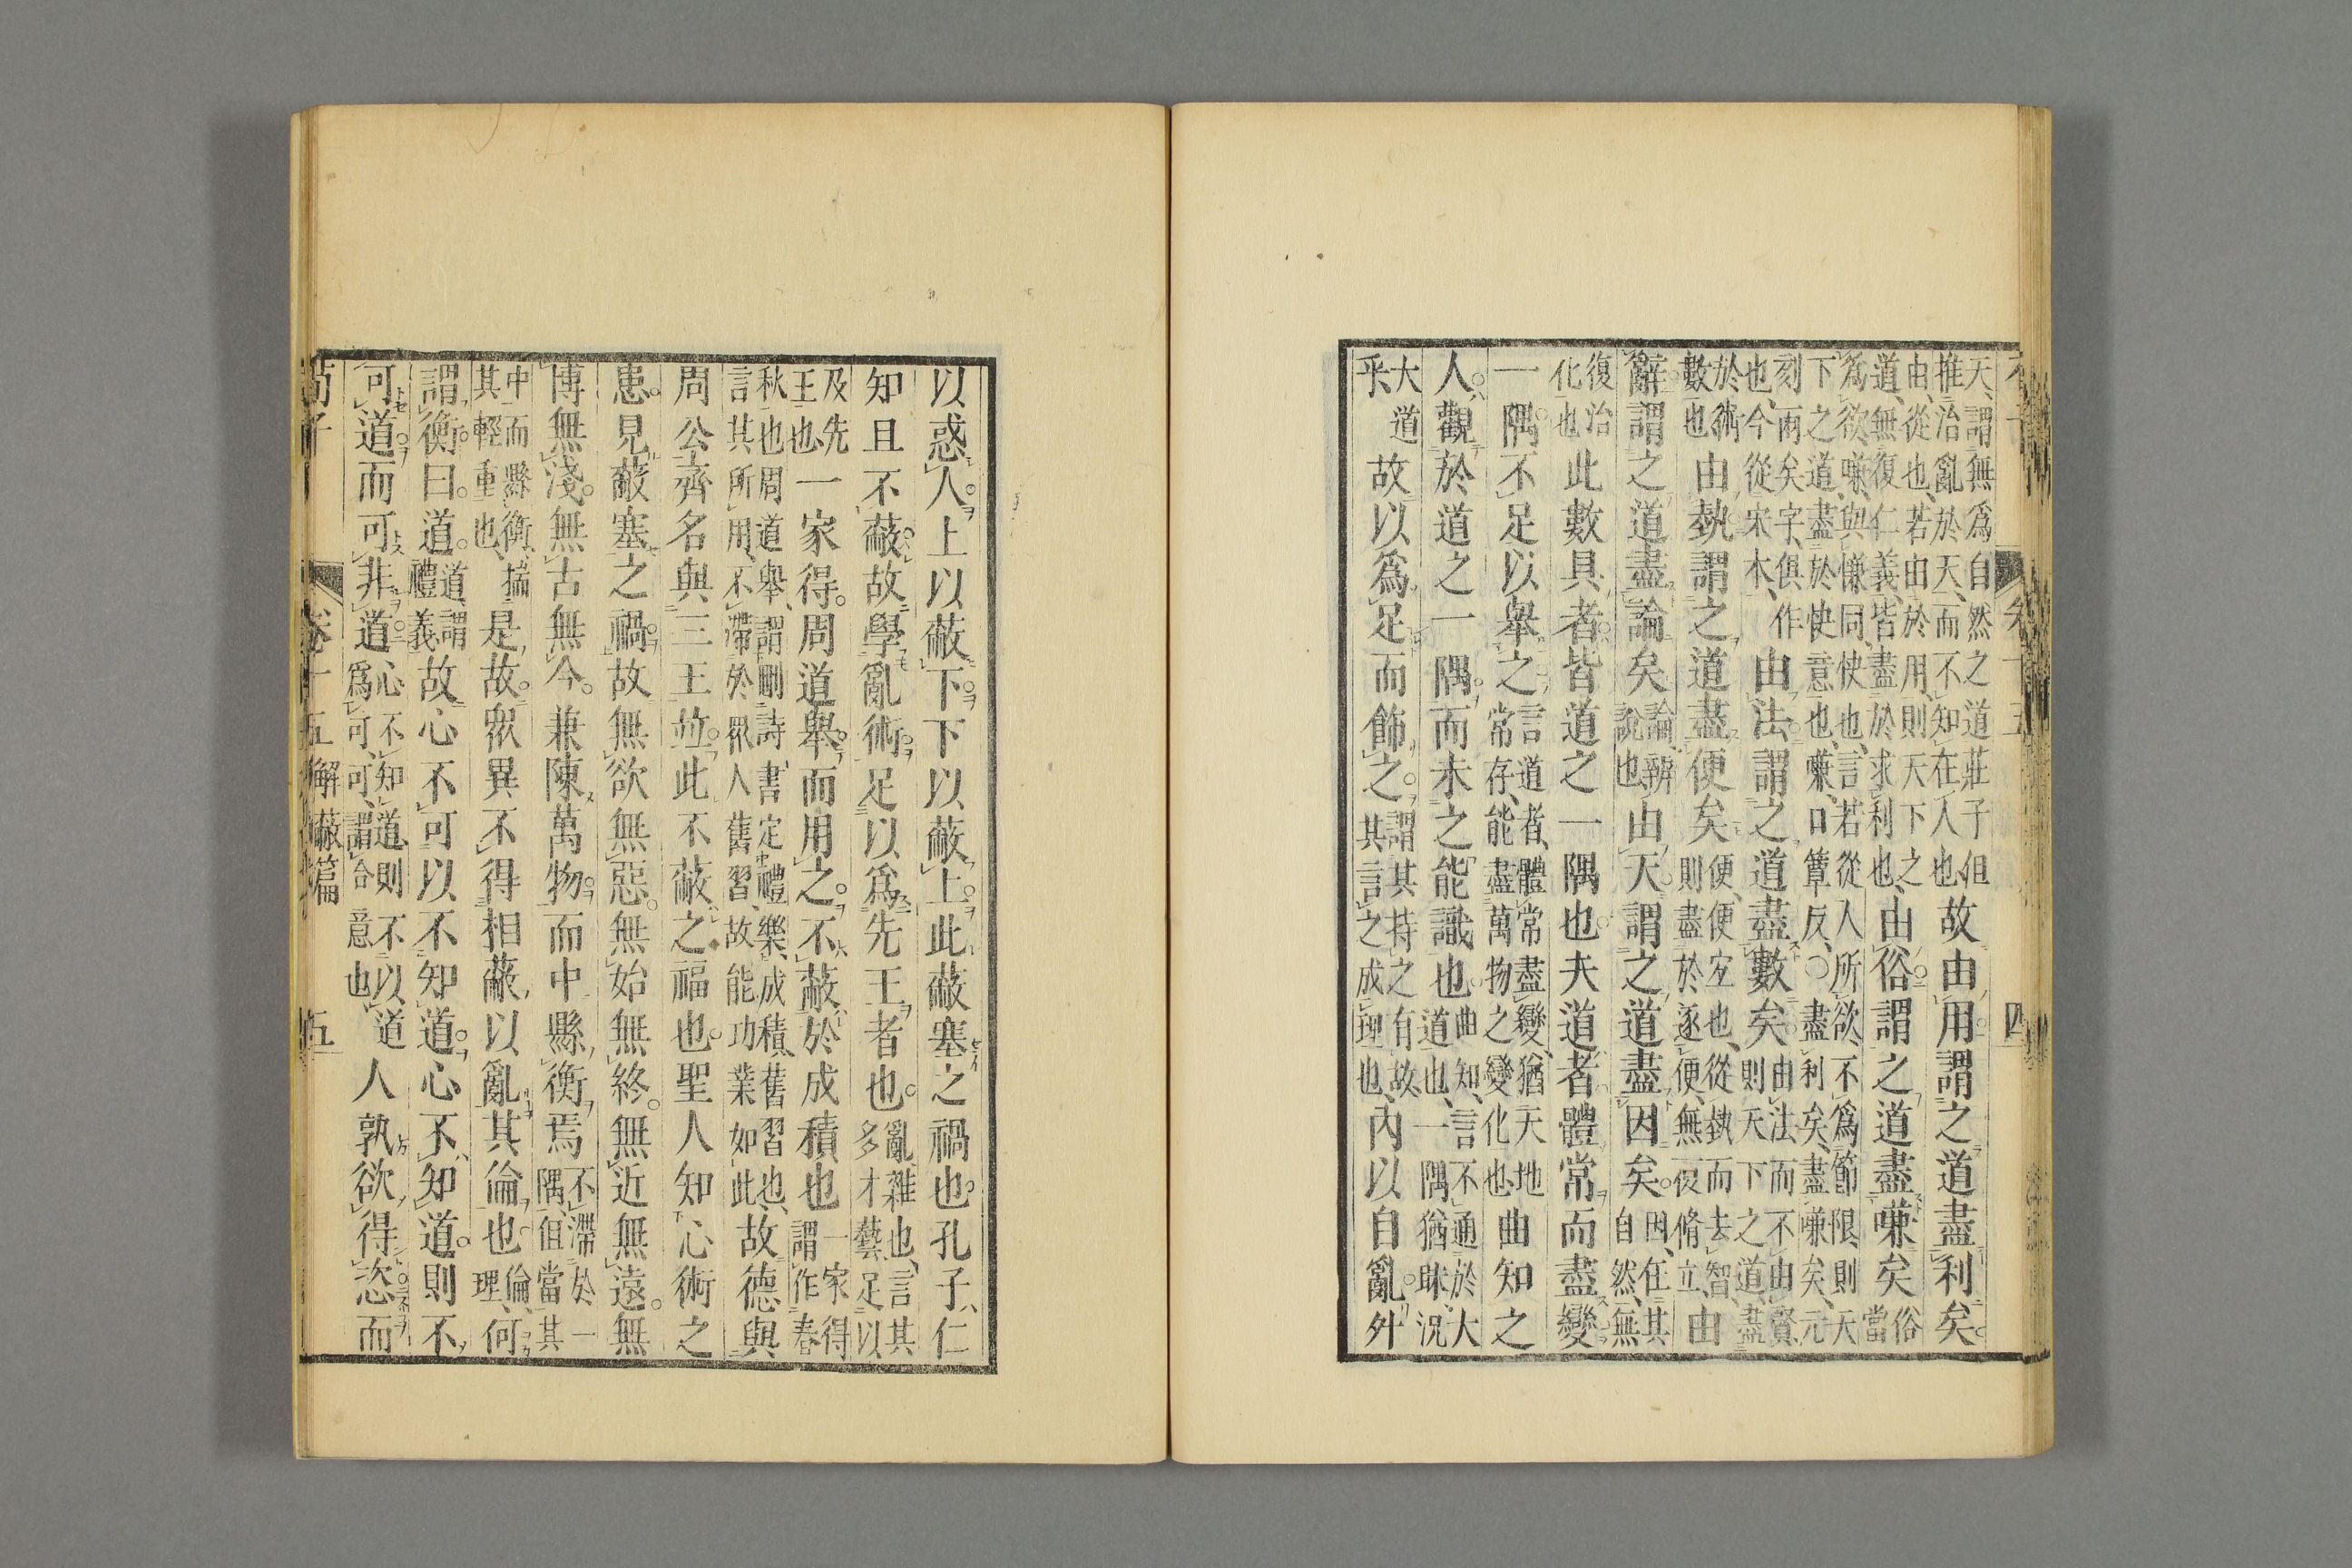 天、謂無爲自然之道莊子但
推治亂於天、而不知在人也、故由用謂之道盡利矣。
由、從也、若由於用、則天下之
道、無復仁義、皆盡於求利也、由俗謂之道盡嗛矣俗當
爲欲、嗛、與慊同、快也、言若從人所欲、不爲節限、則天
下之道、盡於快意也、嗛、口簟反、○盡利矣、盡嗛矣、元
刻兩矣字、俱作
也、今從宋本、由法謂之道盡數矣。由法而不由賢、
則天下之道、盡
於術
數也由埶謂之道盡便矣便、便宜也、從埶而去智、
則盡於逐便、無復脩立、由
辭謂之道盡論矣論、辨
說也由天謂之道盡因矣。因、任其
自然、無
復治
化也此數具者皆道之一隅也夫道者體常而盡變
一隅不足以舉之言道者、體常盡變、猶天地
常存、能盡萬物之變化也曲知之
人觀於道之一隅而未之能識也曲知、言不通於大
道也、一隅猶昧、況
大道
乎、故以爲足而飾之。謂其持之有故、
其言之成理也、內以自亂。外
荀子 卷十五 四
以惑人上以蔽下。下以蔽上。此蔽塞之禍也孔子、仁
知且不蔽故學亂術。足以爲先王者也。亂、雜也、言其
多才藝足以
及先
王也一家得。周道舉、而用之。不蔽於成積也謂一家得
作春
秋也周道舉、謂刪詩書定禮樂、成積、舊習也、
言其所用、不滯於眾人舊習、故能功業如此、故德與
周公齊名與三王竝此不蔽之福也聖人知心術之
患。見蔽塞之禍故無欲無惡。無始無終。無近無遠。無
博無淺。無古無今。兼陳萬物。而中縣衡焉不滯於一
隅、但當其
中而縣衡、揣
其輕重也、是故。眾異不得相蔽以亂其倫也倫、
理、何
謂衡。曰。道。道、謂
禮義故心不可以不知道。心不知道。則不
可道而可非道心不知道、則不以道
爲可、可、謂合意也人孰欲得恣而
荀子 卷十五 解蔽篇 五